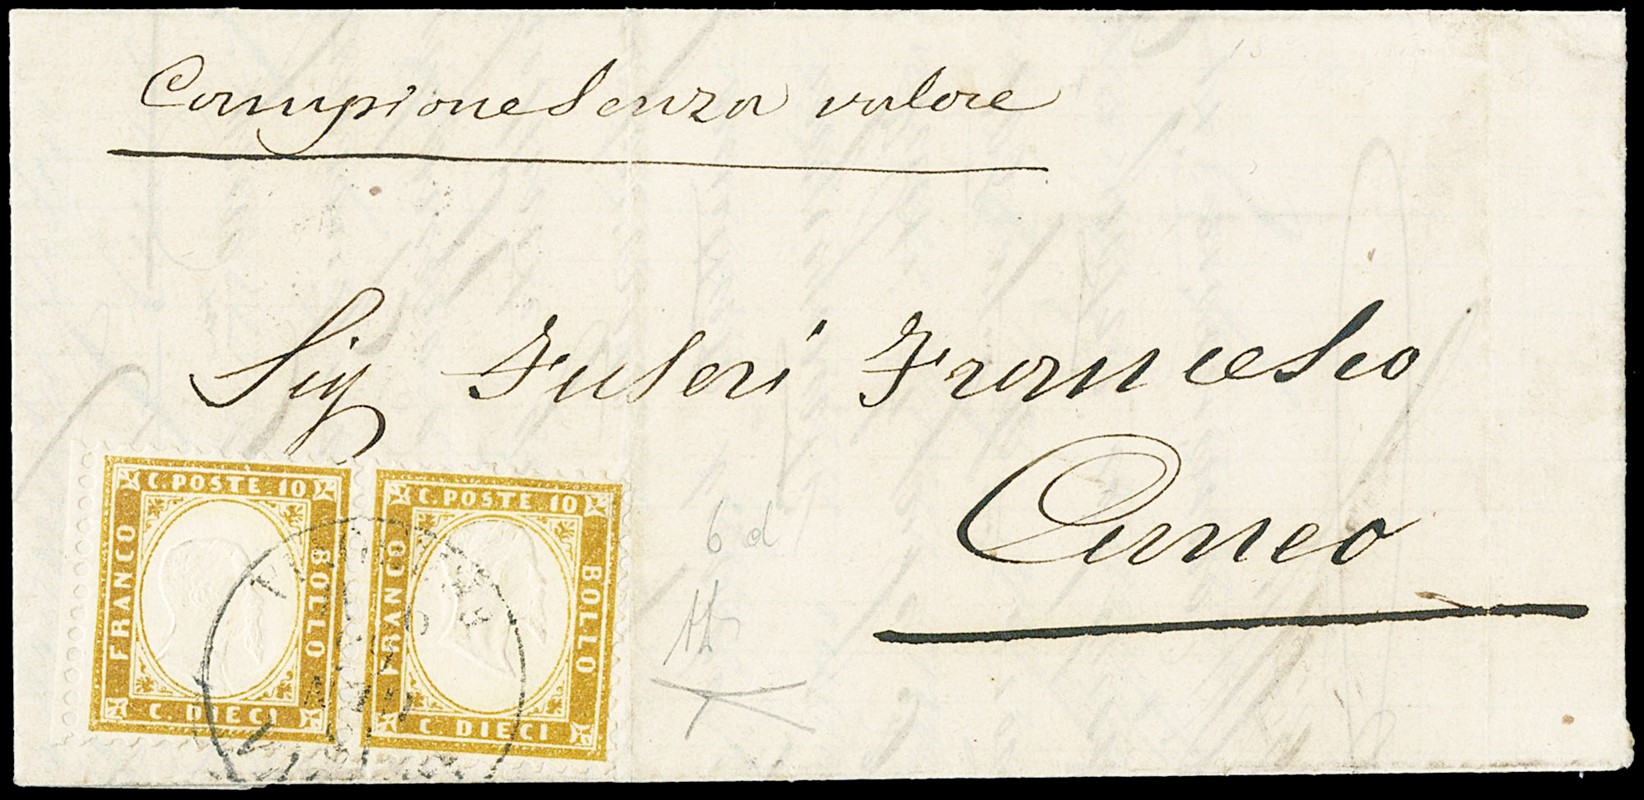 Campione Senza valore
Sig Fuseri Francesco
Cuneo
C. POSTE. 10
FRANCO
BOLLO
C. DIECI
C. POSTE 10
FRANCO
BOLLO
C. DIECI
6 d